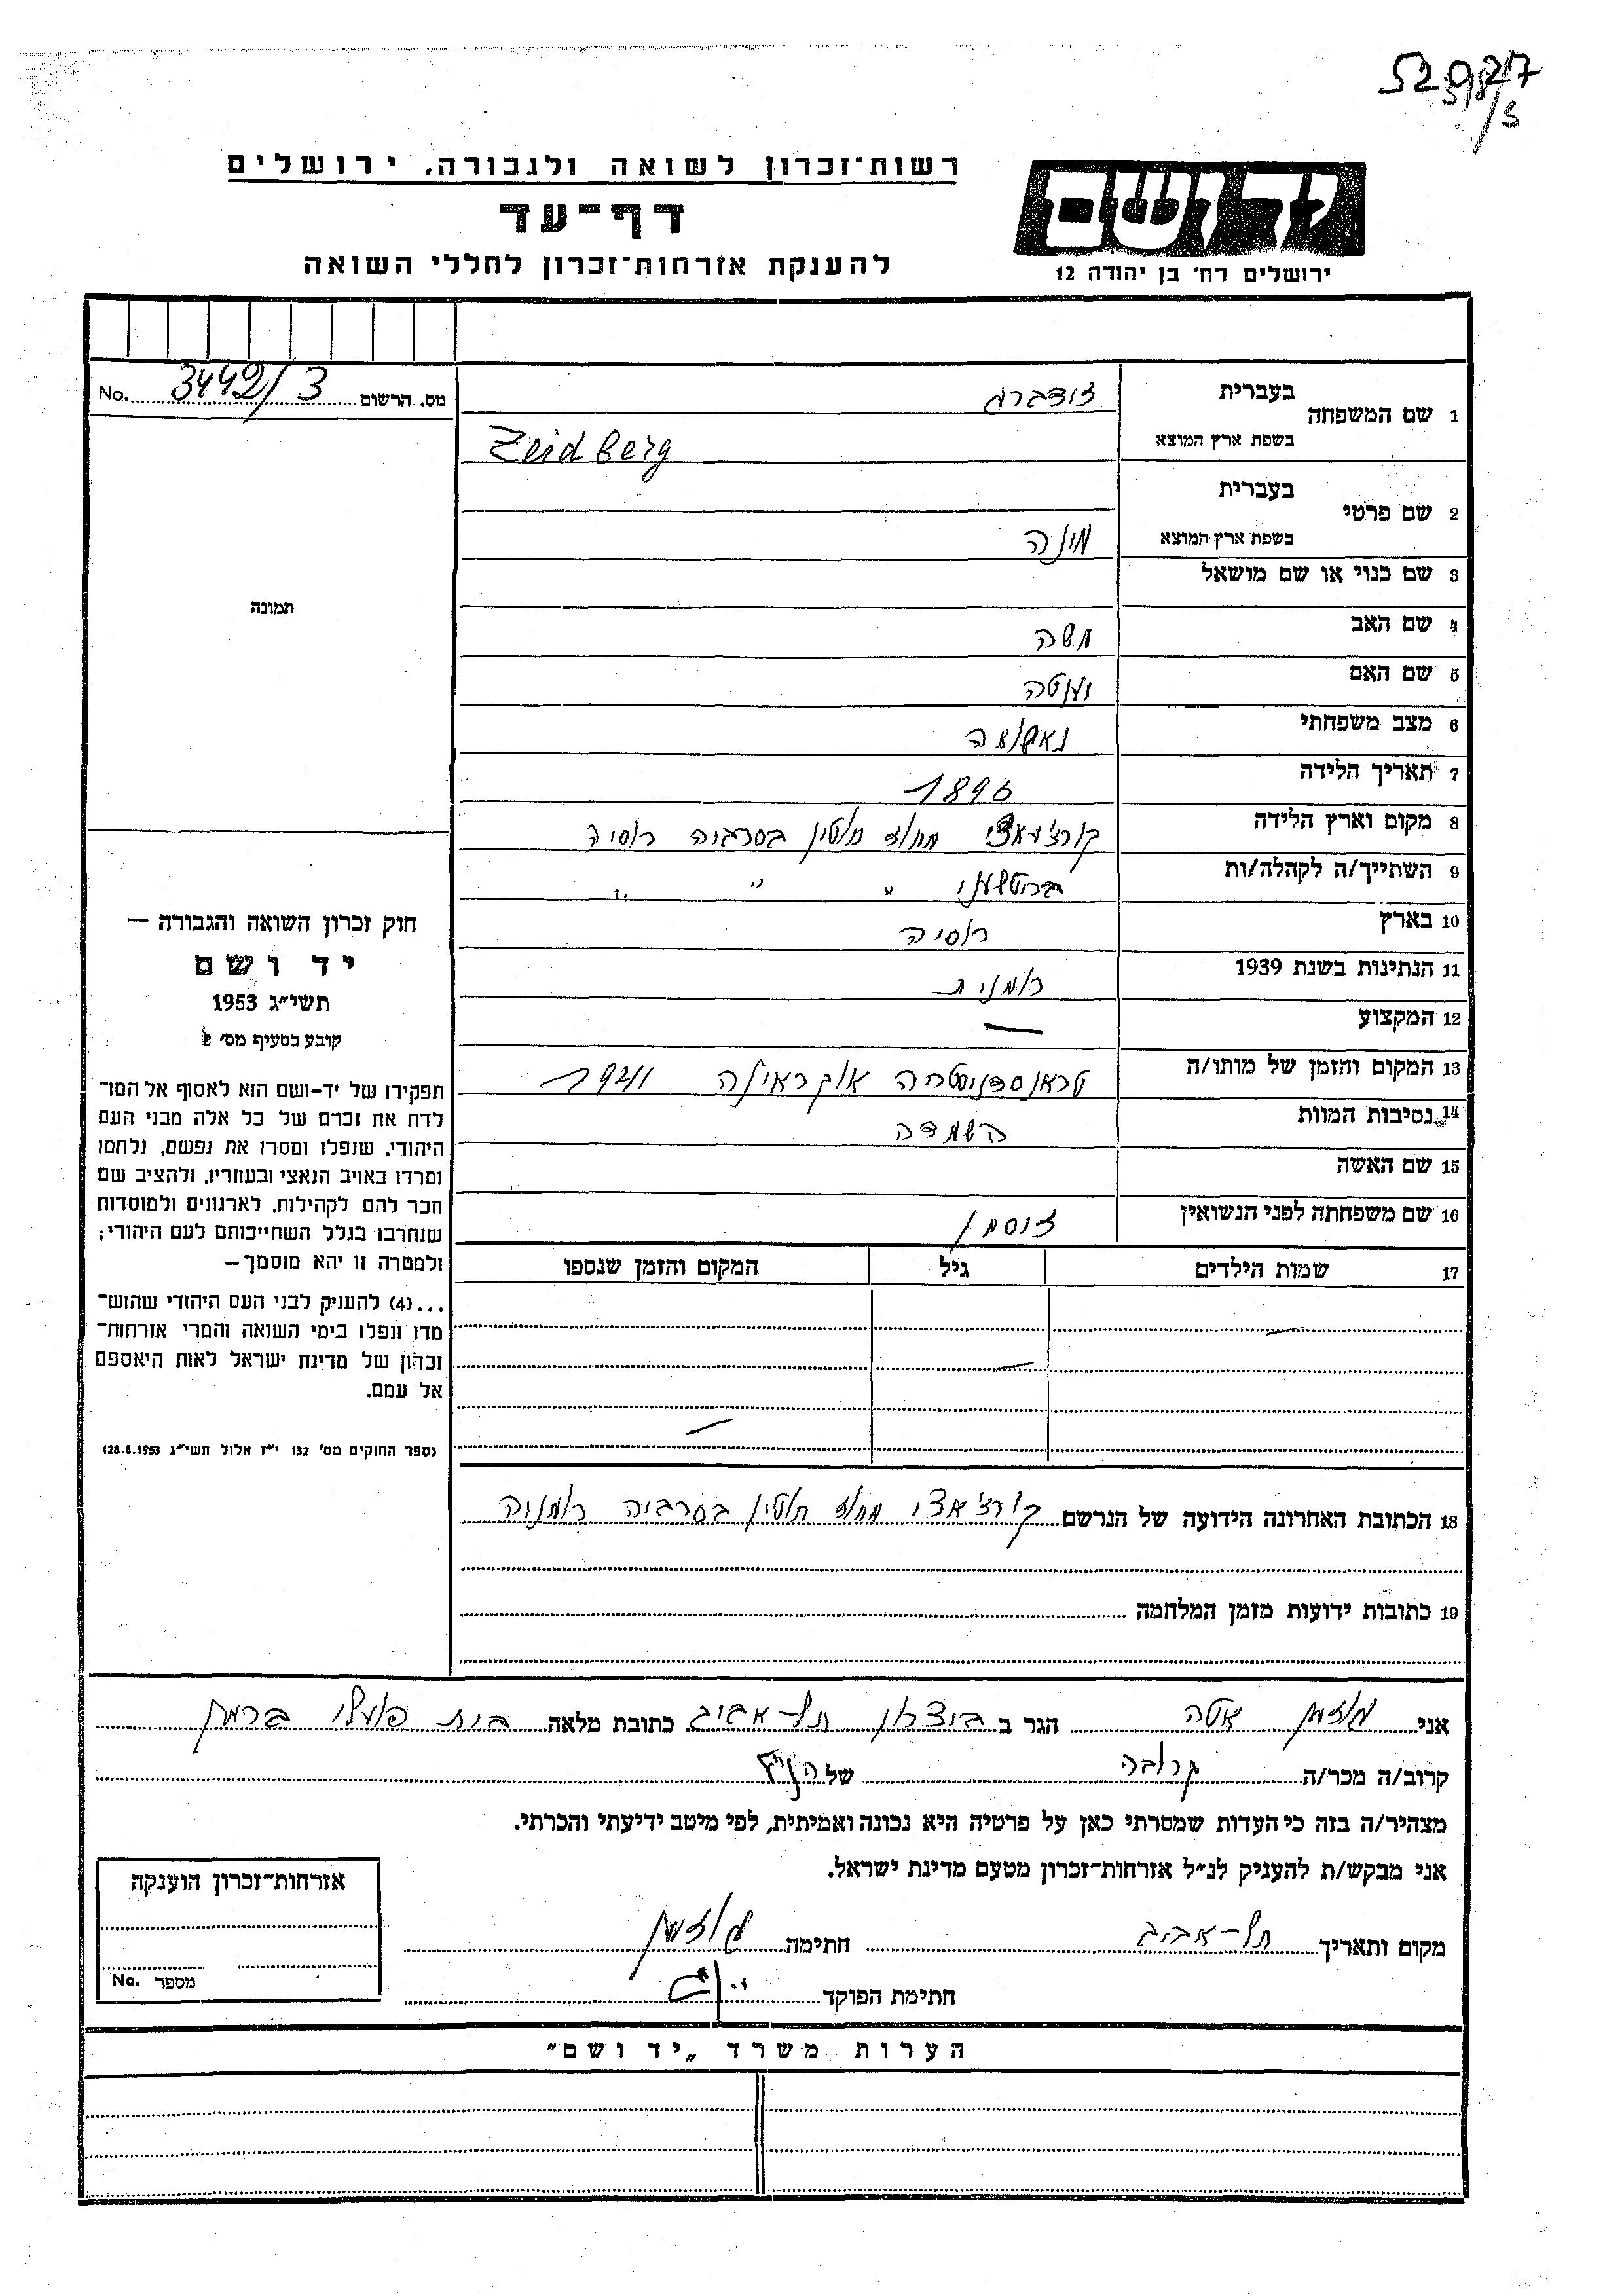 52027
רשות־זכרון לשואה ולגבורה, ירושלים
דף־עד
להענקת אזרחות־זכרון לחללי השואה
יד ושם
ירושלים רח׳ בן יהודה 12
מס. הרשום 3442/3 No.
תמונה
חוק זכרון השואה והגבורה —
יד ושם
תשי״ג 1953
קובע בסעיף מס׳
תפקידו של יד-ושם הוא לאסוף אל המו־
לדת את זכרם של כל אלה מבני העם
היהודי, שנפלו ומסרו את נפשם, נלחמו
ומרדו באויב הנאצי ובעוזריו, ולהציב שם
וזכר להם לקהילות, לארגונים ולמוסדות
שנחרבו בגלל השתייכותם לעם היהודי;
ולמטרה זו יהא מוסמך —
...(4) להעניק לבני העם היהודי שהוש־
מדו ונפלו בימי השואה והמרי אזרחות־
זכרון של מדינת ישראל לאות היאספם
אל עמם.
(ספר החוקים מס׳ 132 י״ז אלול תשי״ג 28.8.1953)
1 שם המשפחה בעברית זידברג
בשפת ארץ המוצא Zeidberg
2 שם פרטי בעברית
בשפת ארץ המוצא מונה
3 שם כנוי או שם מושאל
4 שם האב משה
5 שם האם
6 מצב משפחתי נשואה
7 תאריך הלידה 1896
8 מקום וארץ הלידה מחוז חוטין בסרביה רוסיה
9 השתייך/ה לקהלה/ות ״ ״ ״
10 בארץ רוסיה
11 הנתינות בשנת 1939 רומנית
12 המקצוע —
13 המקום והזמן של מותו/ה טראנסדניסטריה אוקראינה 1941
14 נסיבות המוות השמדה
15 שם האשה
16 שם משפחתה לפני הנשואין
17 שמות הילדים גיל המקום והזמן שנספו
18 הכתובת האחרונה הידועה של הנרשם מחוז חוטין בסרביה רומניה
19 כתובות ידועות מזמן המלחמה
אני הגר ב ביצרון תל-אביב כתובת מלאה בית
קרוב/ה מכר/ה קרובה של
מצהיר/ה בזה כי העדות שמסרתי כאן על פרטיה היא נכונה ואמיתית, לפי מיטב ידיעתי והכרתי.
אני מבקש/ת להעניק לנ״ל אזרחות־זכרון מטעם מדינת ישראל.
מקום ותאריך תל-אביב חתימה
חתימת הפוקד
אזרחות־זכרון הוענקה
מספר No.
הערות משרד „יד ושם״